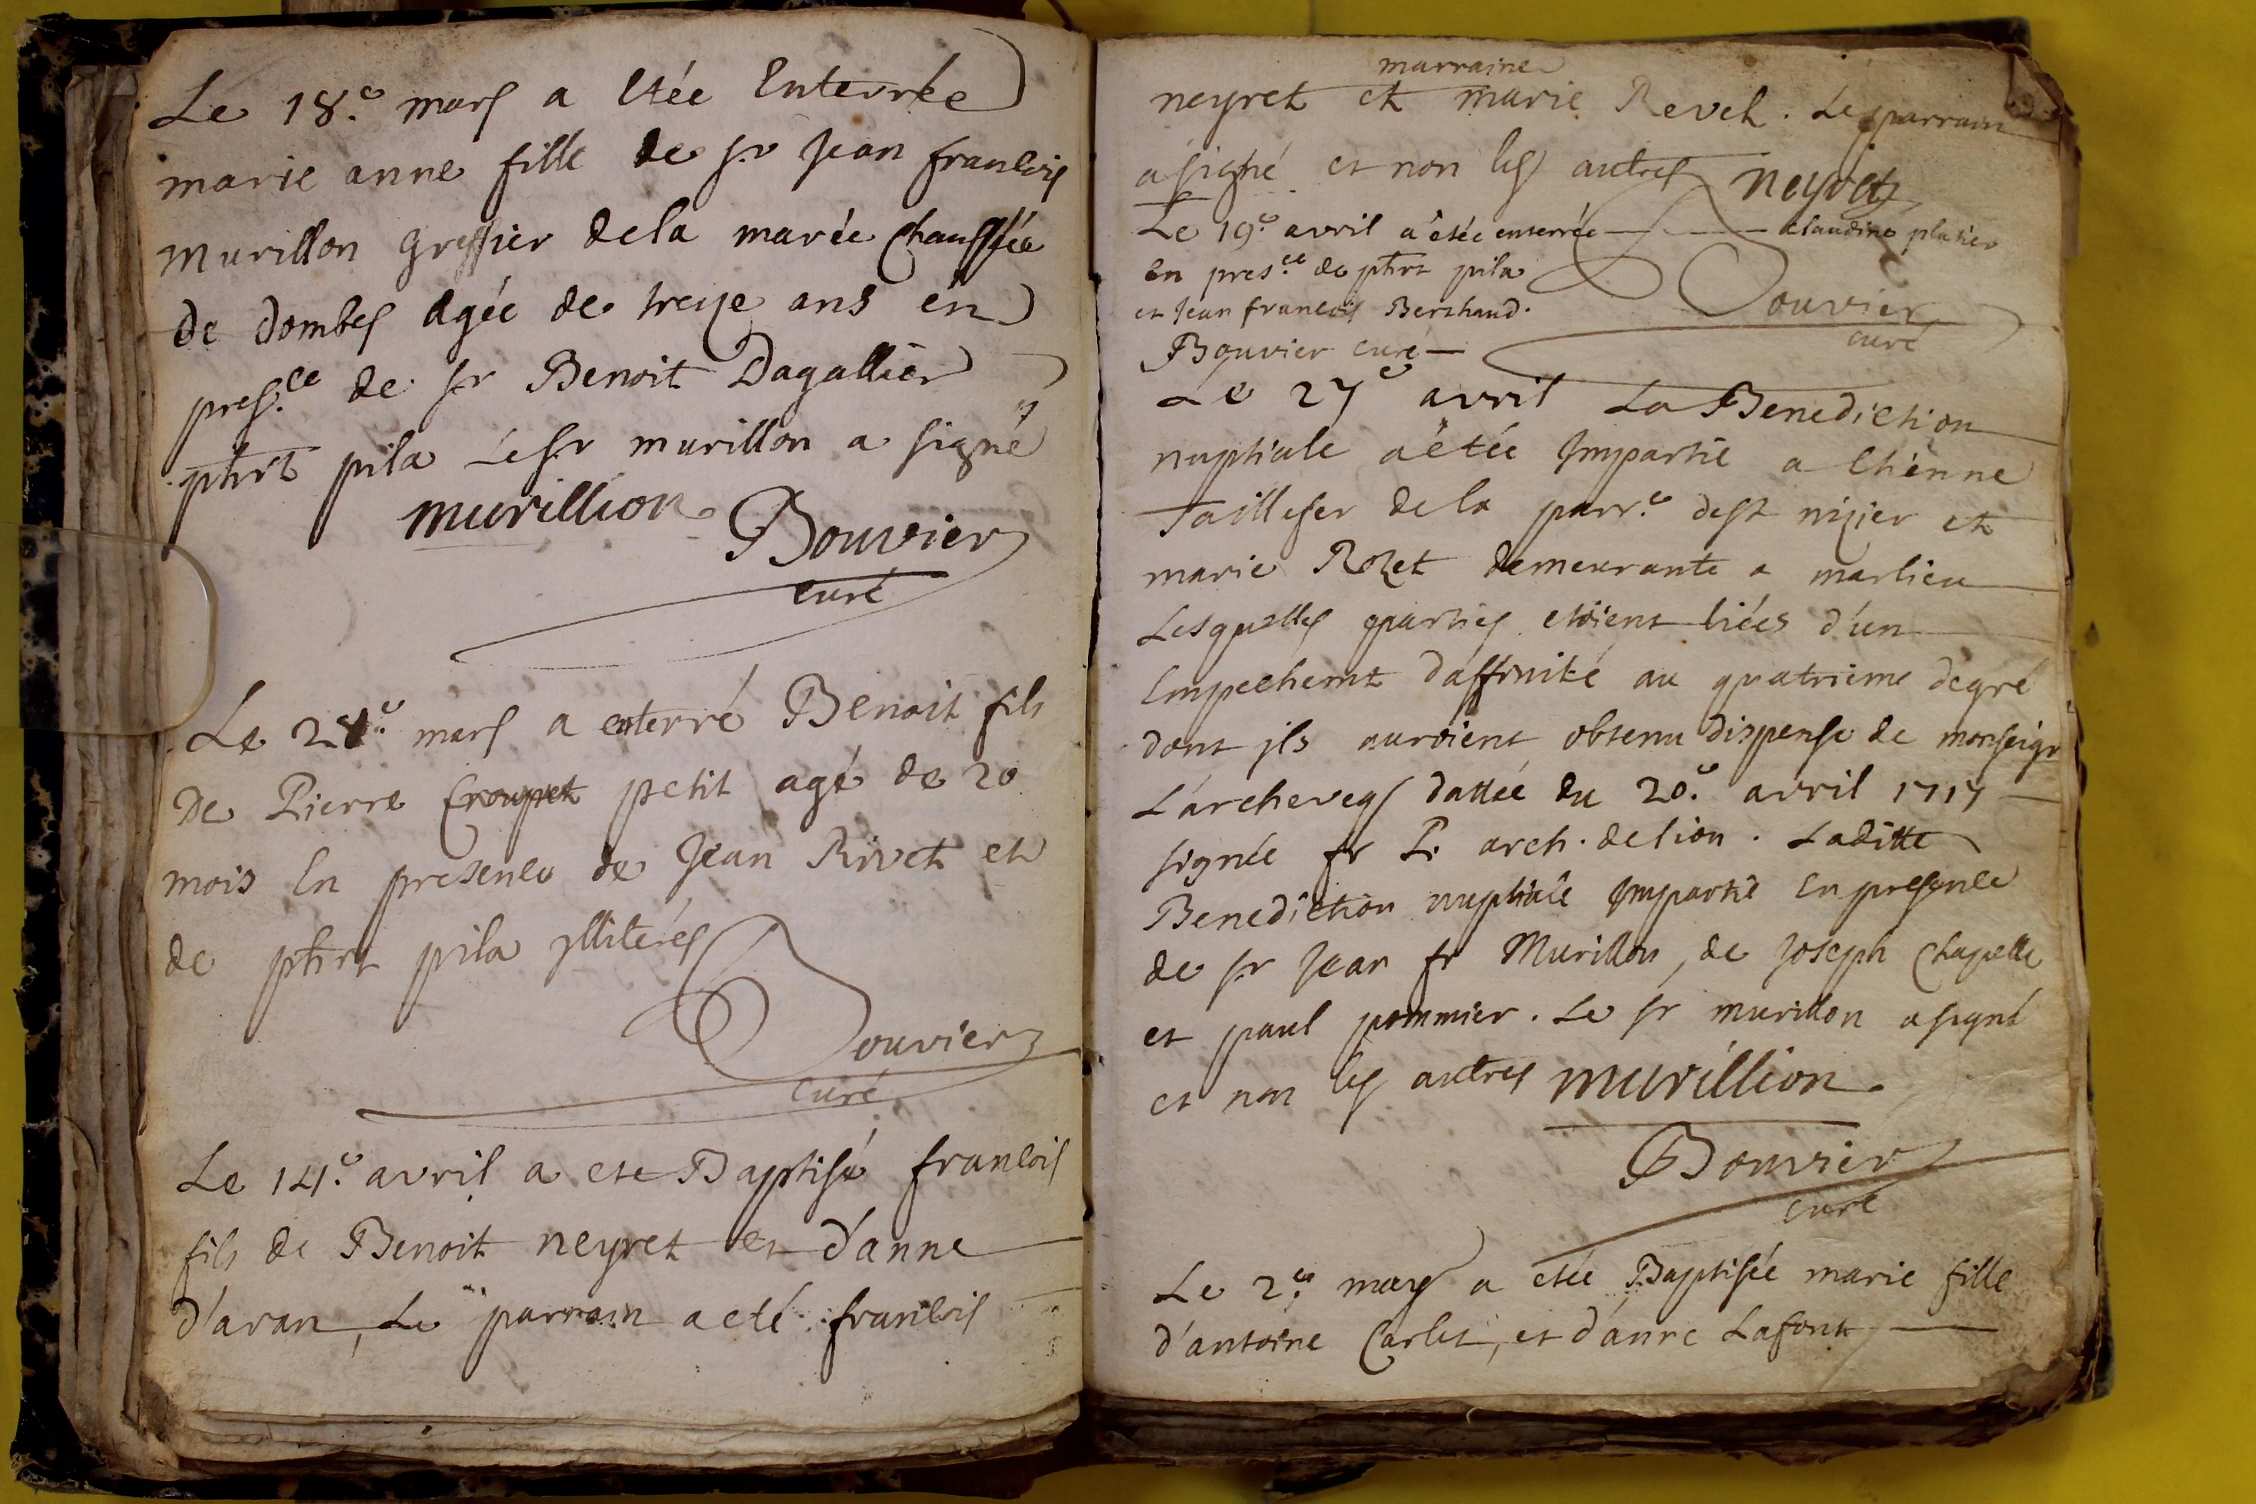 Le 18.e mars a etée Enterrée
marie anne fille de sr Jean francois
murillon greffier dela marée chaussée
de dombes agée de treze ans en
pres.ce de sr Benoit Dagallier
phrt pila Le sr murillon a signé
murillion Bouvier
curé
Le 28.e mars a enterré Benoit fils
De Pierre Croupet petit agé de 20
mois En presence de Jean Rivet et
de phrt pila ylliterés
Bouvier
curé
Le 14.e avril a ete Baptisé francois
fils de Benoit neyret et d'anne
d'aran, Le parrain a eté francois
marraine
neyret et marie Revel. Le parrain
a signé et non les autres neyret
Le 19.e avril a étée enterrée claudine platier
en pres.ce de phrt pila
et Jean francois Berthaud.
Bouvier curé
Bouvier
curé
Le 27e avril La Benediction
nuptiale a etée Impartie a Etienne
Taillefer dela parr.e de st nizier et
marie Rozet demeurante a marlieu
Lesquelles parties etoient liées d'un
Empechemt d'affinité au quatrieme degré
dont jls auroient obtenu dispense de monseigr
L'archeveqs dattée du 20.e avril 1717
signée fr P. arch. de lion. Laditte
Benediction nuptiale Impartie En presence
de sr Jean fr Murillon, de Joseph Chapelle
et paul pommier. Le sr murillon a signé
et non les autres murillion
Bouvier
curé
Le 2.e may a etée Baptisée marie fille
d'antoine Carlet, et d'anne Lafont